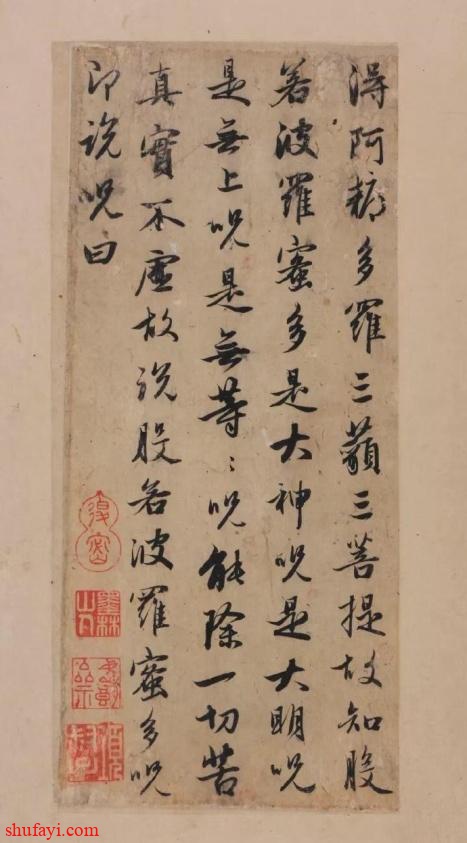 得阿耨多羅三藐三菩提故知般
若波羅蜜多是大神呪是大明呪
是無上呪是無等〻呪能除一切苦
真實不虛故説般若波羅蜜多呪
即説呪曰
墨林
山人
shufayi.com